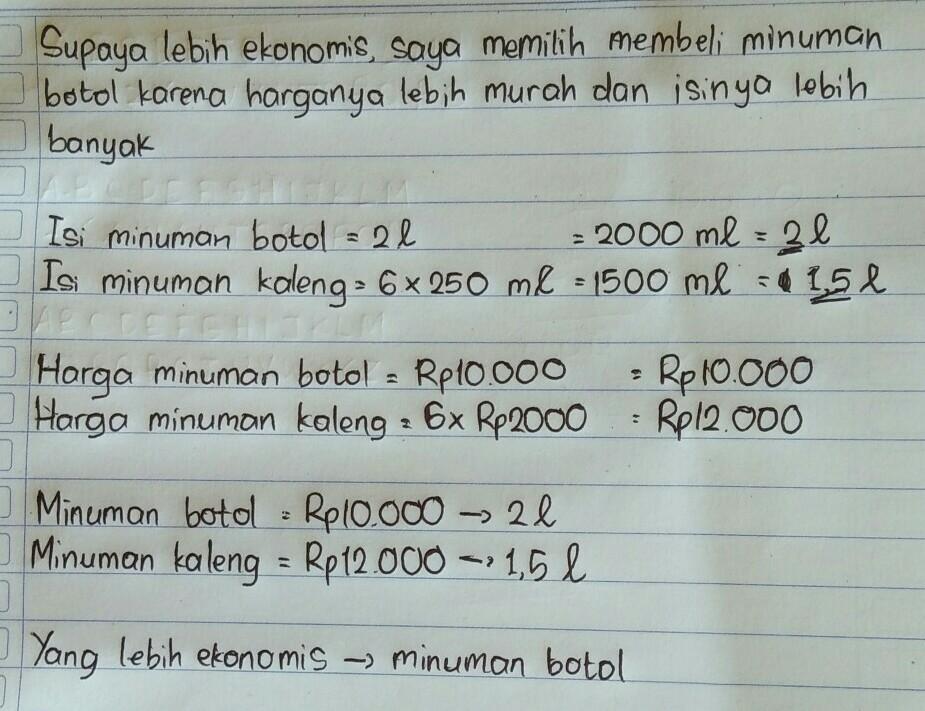 Supaya lebih ekonomis, saya memilih membeli minuman
botol karena harganya lebih murah dan isinya lebih
banyak
Isi minuman botol = 2 l = 2000 ml = 2 l
Isi minuman kaleng = 6 x 250 ml = 1500 ml = 1,5 l
Harga minuman botol = Rp10.000 = Rp10.000
Harga minuman kaleng = 6x Rp2000 = Rp12.000
Minuman botol = Rp10.000 → 2 l
Minuman kaleng = Rp12.000 → 1,5 l
Yang lebih ekonomis → minuman botol